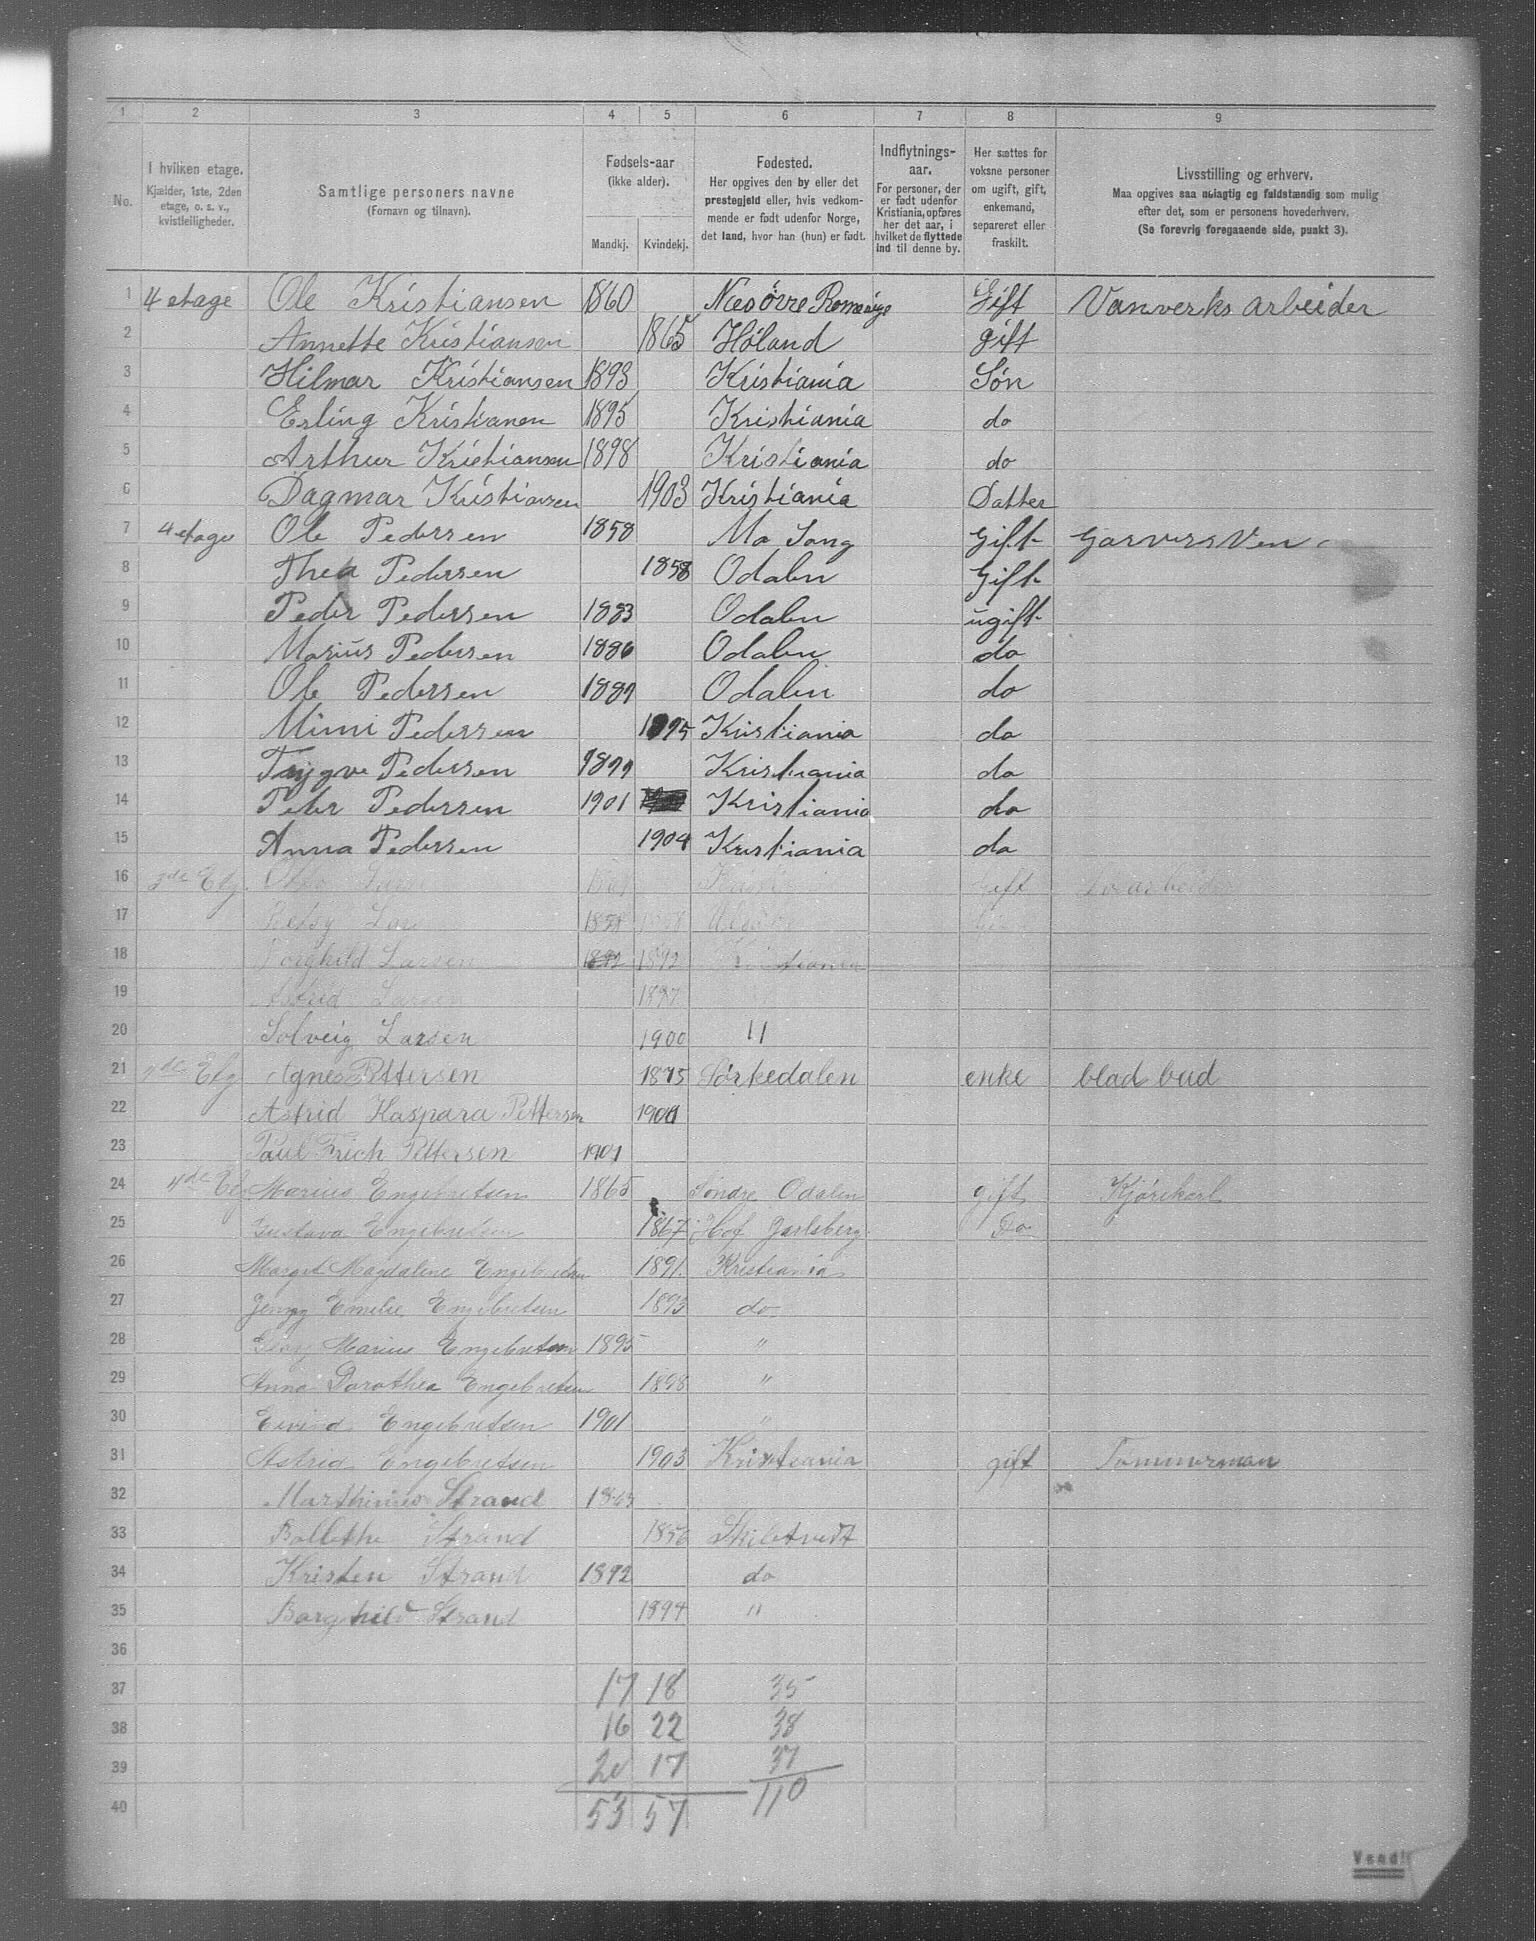 1 2 3 4 5 6 7 8 9
No.
I hvilken etage.
Kjælder, 1ste, 2den
etage, o. s. v.,
kvistleiligheder.
Samtlige personers navne
(Fornavn og tilnavn).
Fødsels-aar
(ikke alder).
Mandkj. Kvindekj.
Fødested.
Her opgives den by eller det
prestegjeld eller, hvis vedkom-
mende er født udenfor Norge,
det land, hvor han (hun) er født.
Indflytnings-
aar.
For personer, der
er født udenfor
Kristiania, opføres
her det aar, i
hvilket de flyttede
ind til denne by.
Her sættes for
voksne personer
om ugift, gift,
enkemand,
separeret eller
fraskilt.
Livsstilling og erhverv.
Maa opgives saa nøiagtig og fuldstændig som mulig
efter det, som er personens hovederhverv.
(Se forøvrig foregaaende side, punkt 3).
1 4 etage Ole Kristiansen 1860 Næs øvre Gift Vanverks arbeider
2 Annette Kristiansen 1865 Høland gift
3 Hilmar Kristiansen 1893 Kristiania Søn
4 Erling Kristianen 1895 Kristiania do
5 Arthur Kristiansen 1898 Kristiania do
6 Dagmar Kristiansen 1903 Kristiania Datter
7 4 etage Ole Pedersen 1858 Mo Gift
8 Thea Pedersen 1858 Odalen Gift
9 Peder Pedersen 1883 Odalen ugift
10 Marius Pedersen 1886 Odalen do
11 Ole Pedersen 1887 Odalen do
12 Mimi Pedersen 1895 Kristiania do
13 Trygve Pedersen 1899 Kristiania do
14 Peter Pedersen 1901 Kristiania do
15 Anna Pedersen 1904 Kristiania do
16 Etg. Gift
17 Betsy 1858
18 Borghild Larsen 1892 1892
19 Astrid Larsen 1897
20 Solveig Larsen 1900 "
21 Etg Agnes Pettersen 1875 Sørkedalen enke blad bud
22 Astrid Kaspara Pettersen 1900
23 Paul Erich Pettersen 1901
24 4de Etg Marius Engebretsen 1865 Søndre Odalen gift Kjørekarl
25 Gustava Engebretsen 1867 Hof Jarlsberg Do
26 Margit Magdalene Engebretsen 1891. Kristiania
27 Jenny Emelie Engebretsen 1893 do
28 Marius Engebretsen 1895 "
29 Anna Dorothea Engebretsen 1898 "
30 Eivind Engebretsen 1901 "
31 Astrid Engebretsen 1903 Kristiania gift Tømmerman
32 Marthinius Strand
33 Strand 1856 Skibtvedt
34 Kristen Strand 1892 do
35 Borghild Strand 1894 "
36
37 17 18 35
38 16 22 38
39 20 17 37
40 53 57 110
Vend!